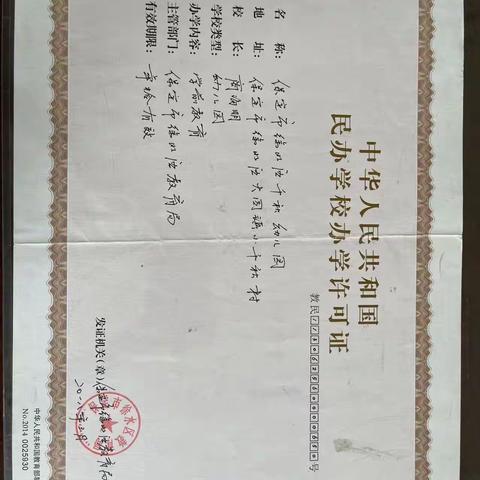 中华人民共和国
民办学校办学许可证
教民号
名称：保定市徐水区千祉幼儿园
地址：保定市徐水区大因镇小千祉村
校长：
学校类型：幼儿园
办学内容：学前教育
主管部门：保定市徐水区教育局
有效期限：年检有效
发证机关(章)保定市徐水区教育局
中华人民共和国教育部制
No.2014 0025930